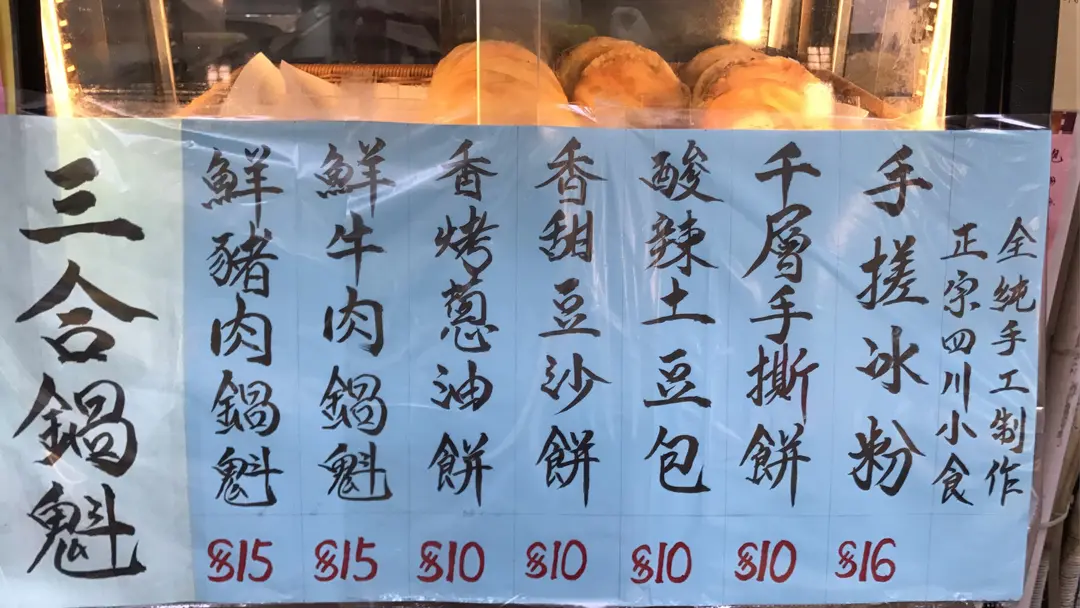 全純手工制作
正宗四川小食
手搓冰粉 $16
千層手撕餅 $10
酸辣土豆包 $10
香甜豆沙餅 $10
香烤蔥油餅 $10
鮮牛肉鍋魁 $15
鮮豬肉鍋魁 $15
三合鍋魁